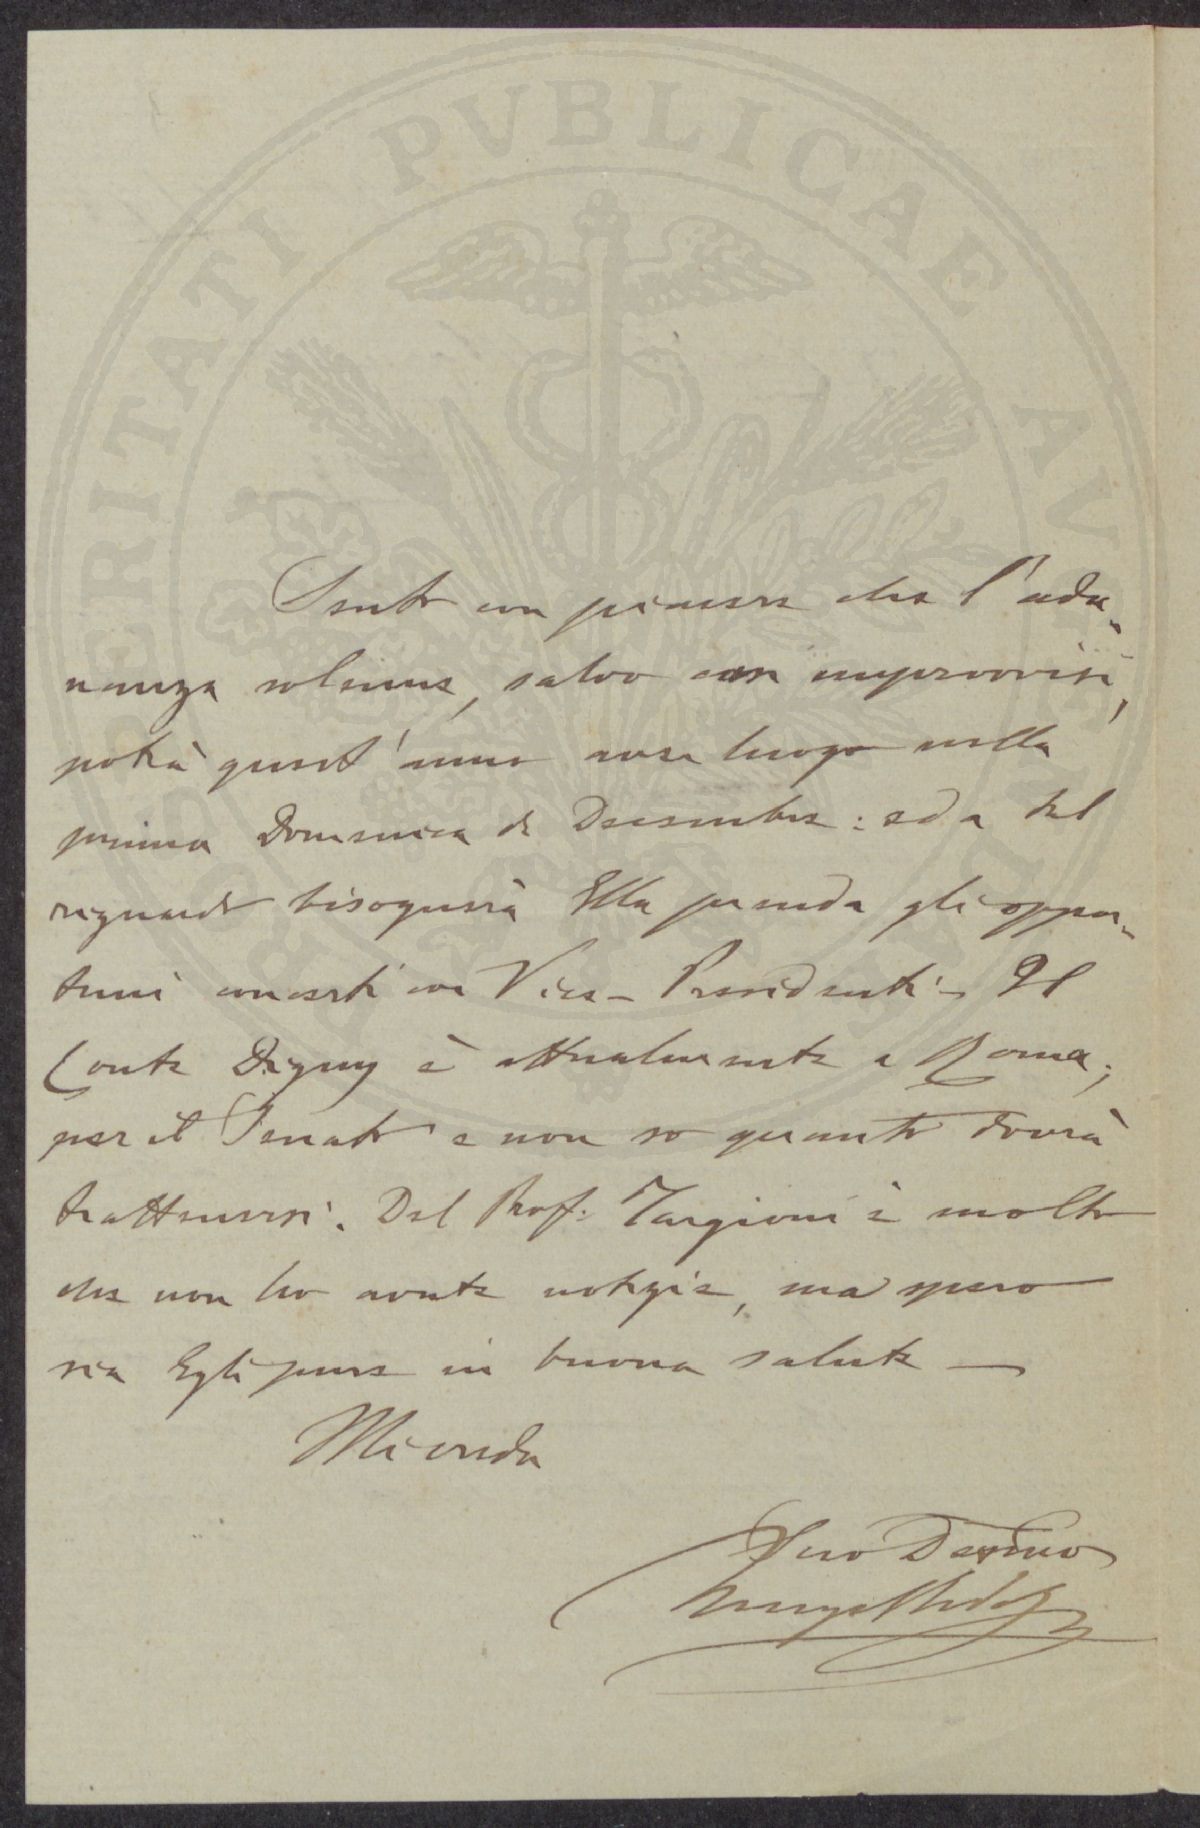 PROSPERITATI PUBLICAE AUGENDAE
Sento con piacere che l'adu-
nanza solenne, salvo casi improvvisi,
potrà quest'anno aver luogo nella
prima Domenica di Decembre: ed a tal
riguardo bisognerà Ella prenda gli oppor-
tuni concerti coi Vice-Presidenti - Il
Conte Digny è attualmente a Roma,
per il Senato e non so quanto dovrà
trattenersi. Del Prof. Targioni è molto
che non ho avute notizie, ma spero
sia Egli pure in buona salute —
Mi creda
Suo Devmo